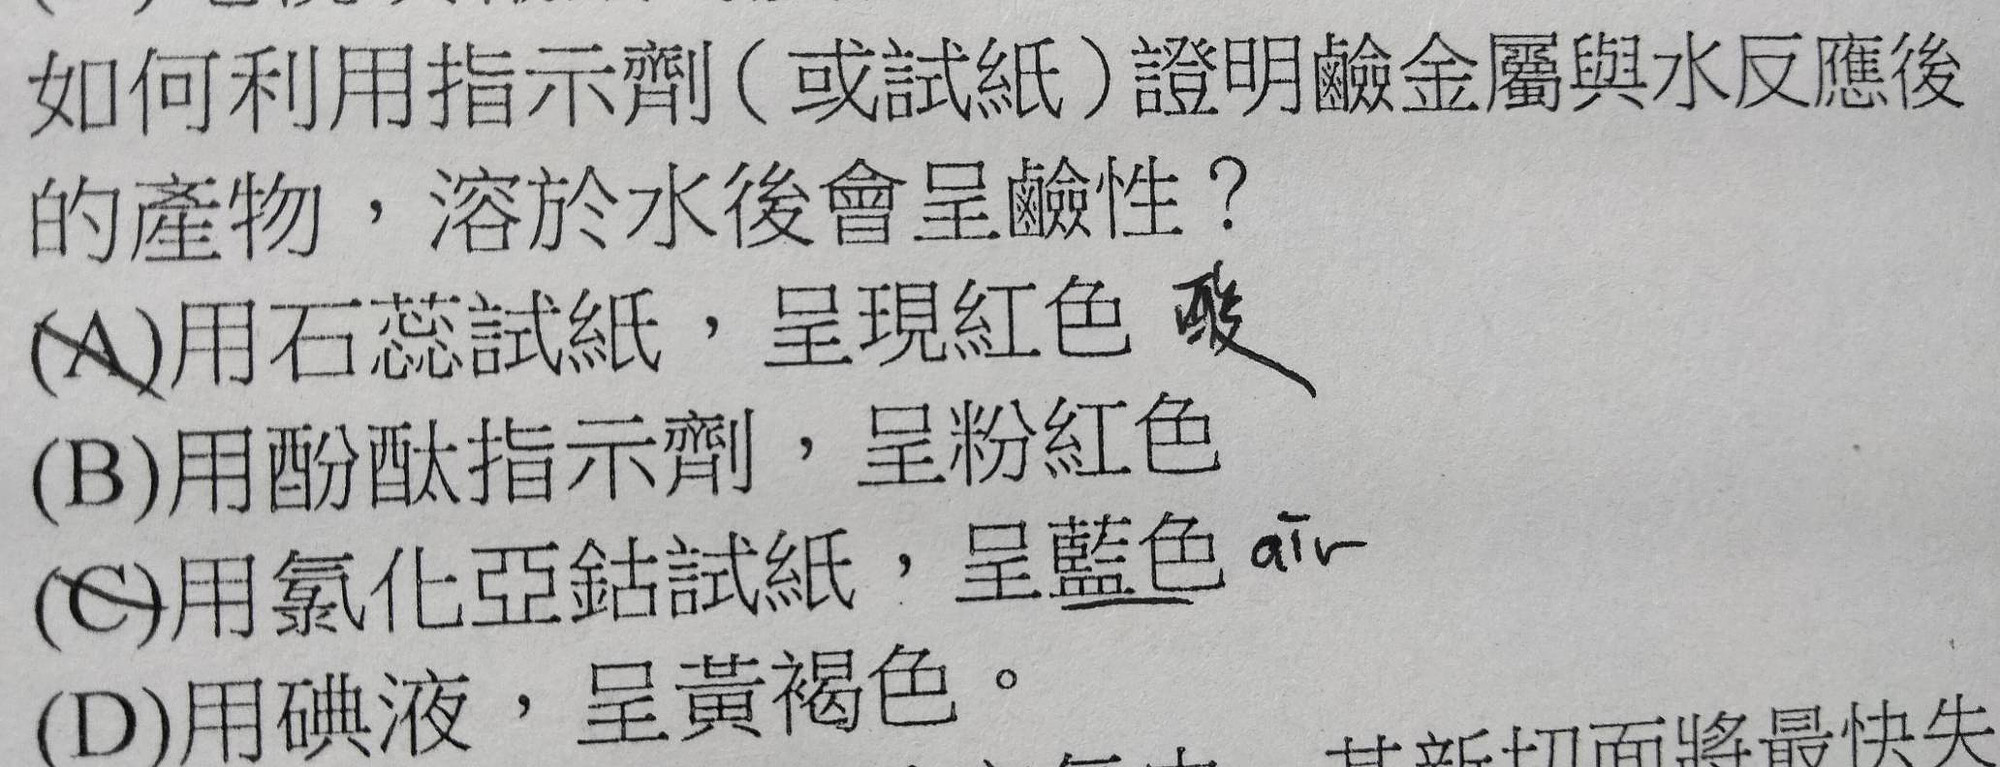 如何利用指示劑(或試紙)證明鹼金屬與水反應後
的產物，溶於水後會呈鹼性？
(A)用石蕊試紙，呈現紅色 酸
(B)用酚酞指示劑，呈粉紅色
(C)用氯化亞鈷試紙，呈藍色 air
(D)用碘液，呈黃褐色。
其新切面將最快失